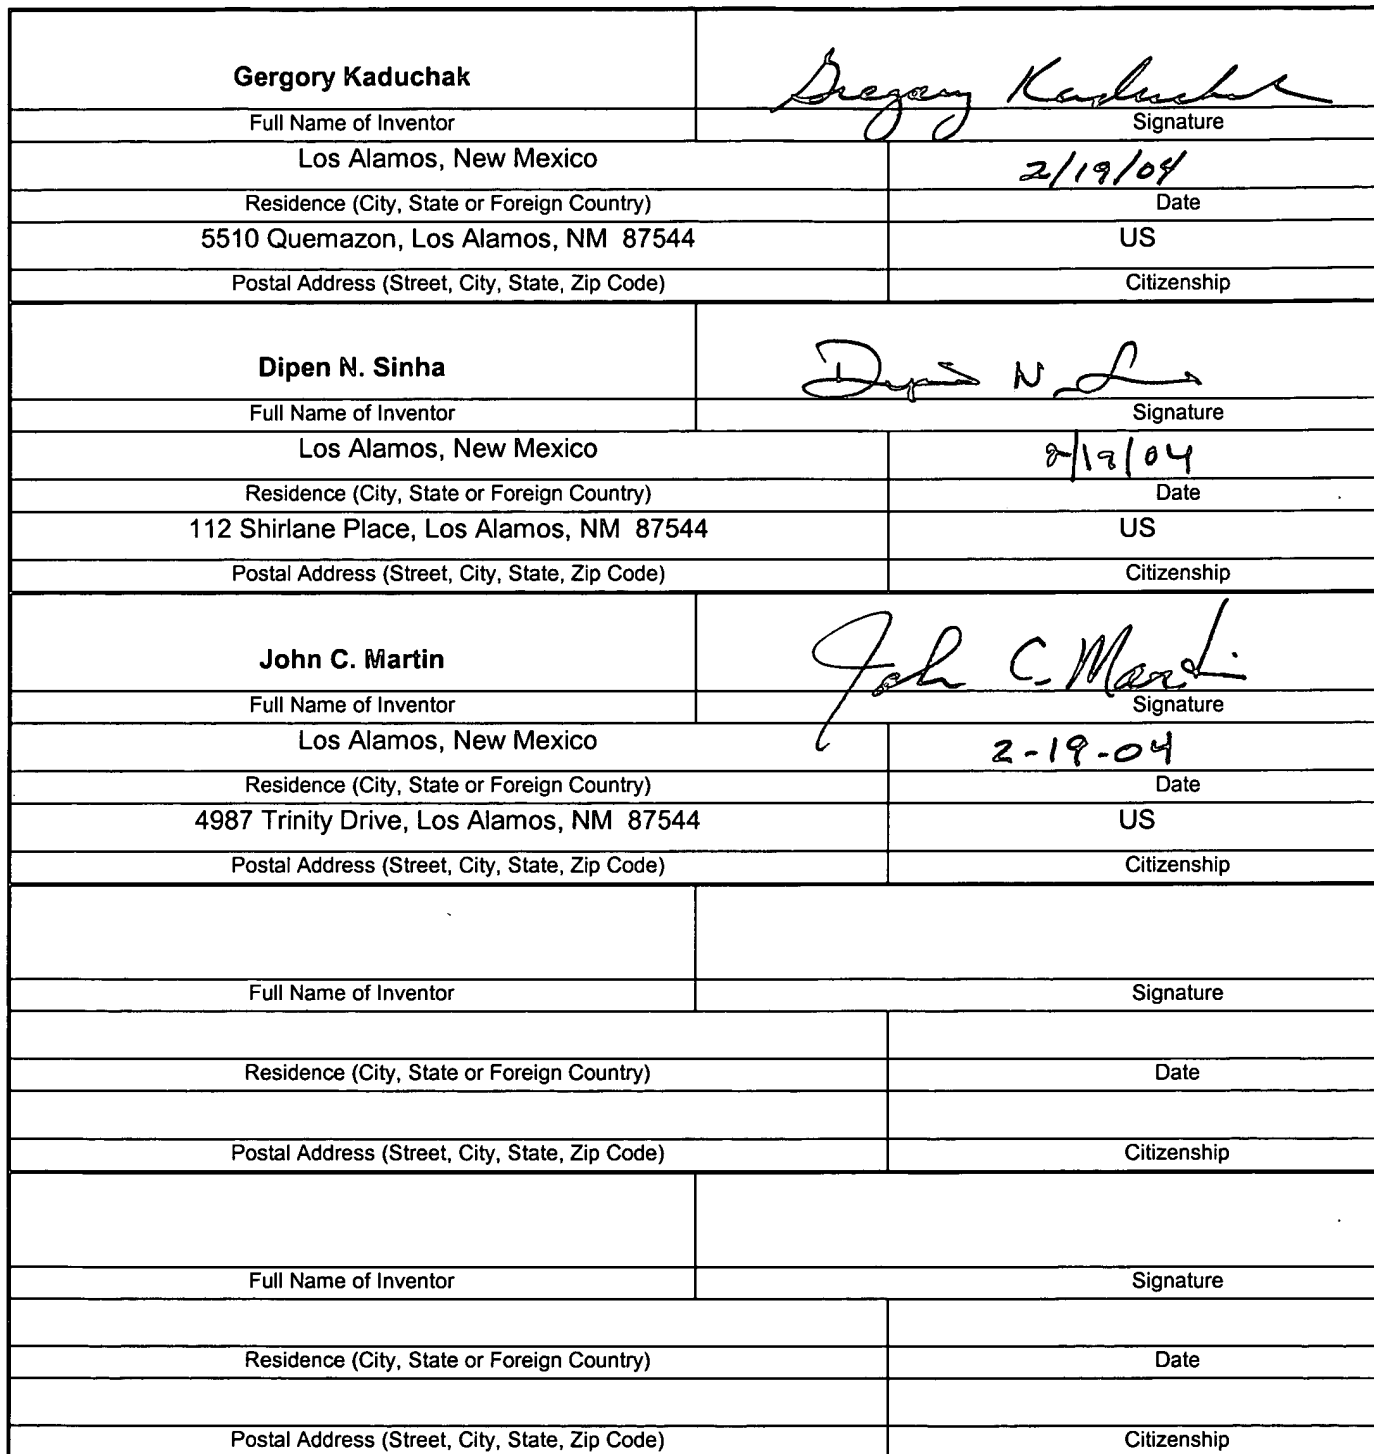 Gergory Kaduchak Gregory Kaduchak
Full Name of Inventor Signature
Los Alamos, New Mexico 2/19/04
Residence (City, State or Foreign Country) Date
5510 Quemazon, Los Alamos, NM 87544 US
Postal Address (Street, City, State, Zip Code) Citizenship
Dipen N. Sinha Dipen N.
Full Name of Inventor Signature
Los Alamos, New Mexico 2/19/04
Residence (City, State or Foreign Country) Date
112 Shirlane Place, Los Alamos, NM 87544 US
Postal Address (Street, City, State, Zip Code) Citizenship
John C. Martin John C. Martin
Full Name of Inventor Signature
Los Alamos, New Mexico 2-19-04
Residence (City, State or Foreign Country) Date
4987 Trinity Drive, Los Alamos, NM 87544 US
Postal Address (Street, City, State, Zip Code) Citizenship
Full Name of Inventor Signature
Residence (City, State or Foreign Country) Date
Postal Address (Street, City, State, Zip Code) Citizenship
Full Name of Inventor Signature
Residence (City, State or Foreign Country) Date
Postal Address (Street, City, State, Zip Code) Citizenship